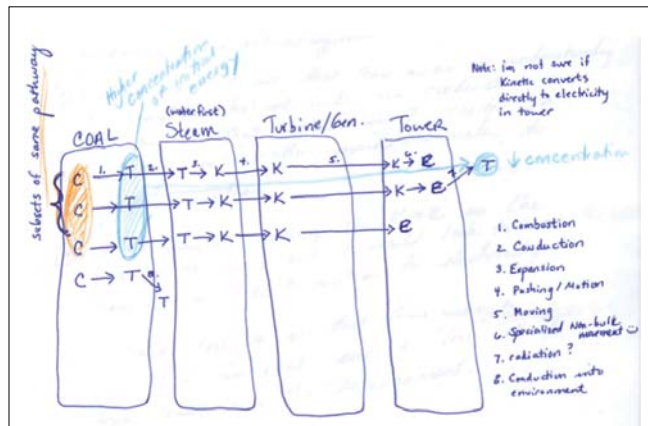 subsets of same pathway
Higher
concentration
of initial
energy
Note: im not sure if
Kinetic converts
directly to electricity
in tower
COAL
(water first)
Steam
Turbine/Gen.
Tower
C 1. T 2. T 3. K 4. K 5. K 6. e 7. T ↓ concentration
C T T K K K e
C T T K K e
C T 8. T
1. Combustion
2. Conduction
3. Expansion
4. Pushing/Motion
5. Moving
6. Specialised Non-bulk
movement
7. radiation?
8. Conduction into
environment